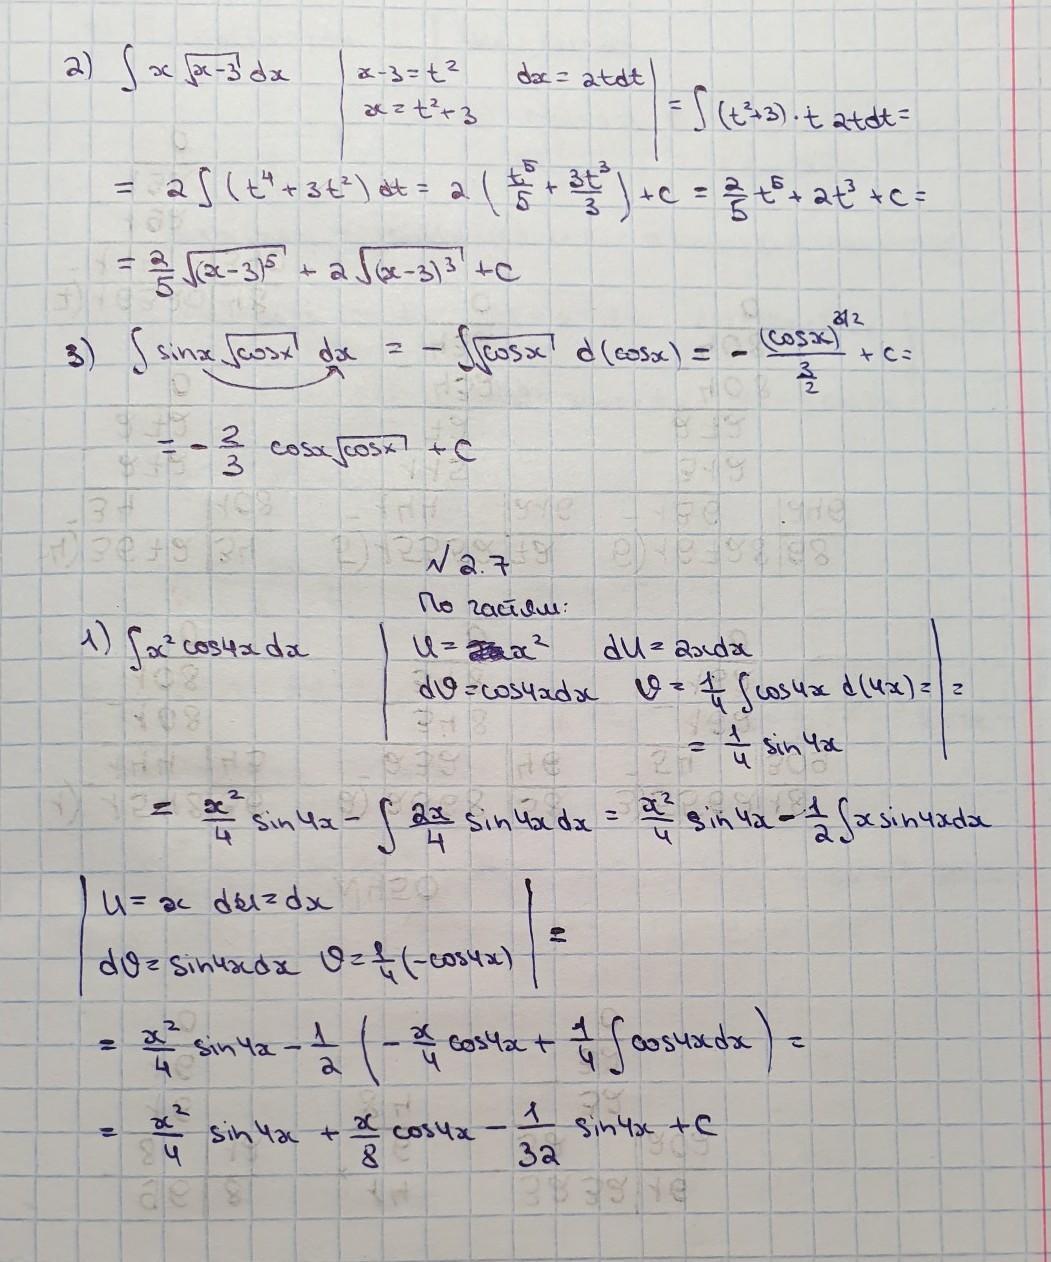 2) ∫ x √(x-3) dx | x-3 = t² dx = 2tdt | = ∫ (t²+3) · t 2tdt =
x = t²+3
= 2 ∫ (t⁴ + 3t²) dt = 2 (t⁵/5 + 3t³/3) + c = 2/5 t⁵ + 2t³ + c =
= 2/5 √(x-3)⁵ + 2 √(x-3)³ + c
3) ∫ sinx √cosx dx = - ∫ √cosx d(cosx) = - (cosx)^3/2 / 3/2 + c =
= - 2/3 cosx √cosx + c
№ 2.7
По частям:
1) ∫ x² cos4x dx | U = x² dU = 2xdx
dϑ = cos4xdx ϑ = 1/4 ∫ cos4x d(4x) = | =
= 1/4 sin4x
= x²/4 sin4x - ∫ 2x/4 sin4x dx = x²/4 sin4x - 1/2 ∫ x sin4xdx
| U = x du = dx
dϑ = sin4xdx ϑ = 1/4 (-cos4x) | =
= x²/4 sin4x - 1/2 (- x/4 cos4x + 1/4 ∫ cos4xdx) =
= x²/4 sin4x + x/8 cos4x - 1/32 sin4x + c